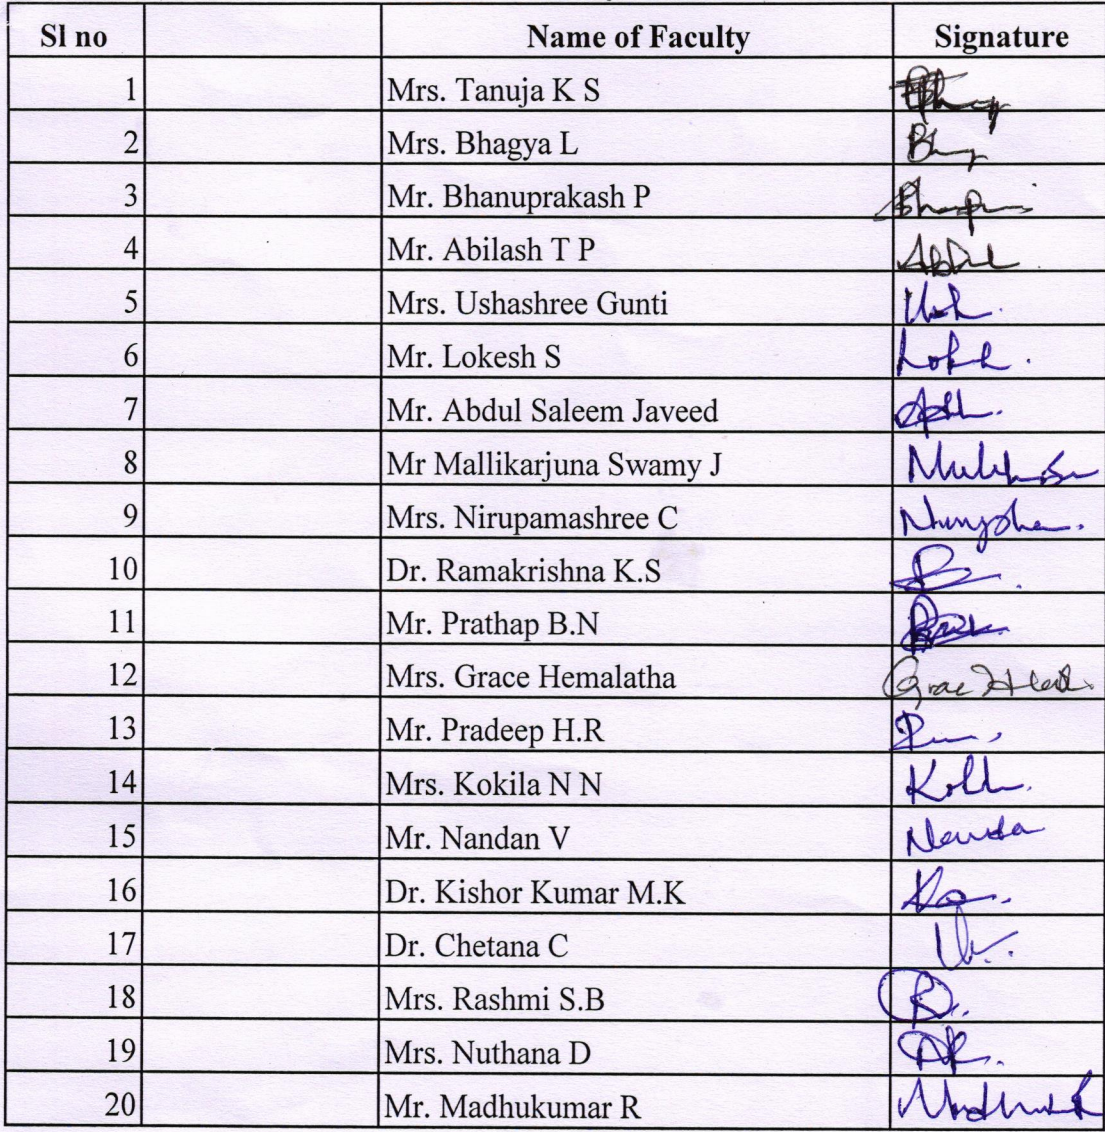 Sl no Name of Faculty Signature
1 Mrs. Tanuja K S
2 Mrs. Bhagya L
3 Mr. Bhanuprakash P
4 Mr. Abilash T P
5 Mrs. Ushashree Gunti
6 Mr. Lokesh S
7 Mr. Abdul Saleem Javeed
8 Mr Mallikarjuna Swamy J
9 Mrs. Nirupamashree C
10 Dr. Ramakrishna K.S
11 Mr. Prathap B.N
12 Mrs. Grace Hemalatha
13 Mr. Pradeep H.R
14 Mrs. Kokila N N
15 Mr. Nandan V
16 Dr. Kishor Kumar M.K
17 Dr. Chetana C
18 Mrs. Rashmi S.B
19 Mrs. Nuthana D
20 Mr. Madhukumar R